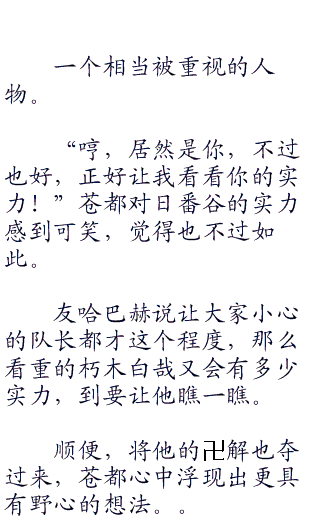 一个相当被重视的人
物。
“哼，居然是你，不过
也好，正好让我看看你的实
力！”苍都对日番谷的实力
感到可笑，觉得也不过如
此。
友哈巴赫说让大家小心
的队长都才这个程度，那么
看重的朽木白哉又会有多少
实力，到要让他瞧一瞧。
顺便，将他的卍解也夺
过来，苍都心中浮现出更具
有野心的想法。。